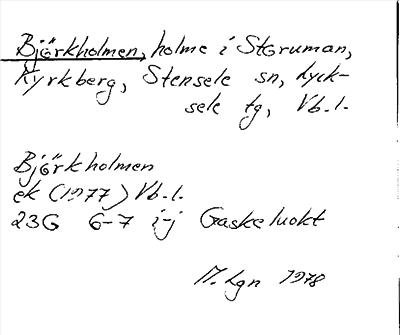 Björkholmen, holme i Storuman,
Kyrkberg, Stensele sn, Lyck-
sele tg, Vb.l.
Björkholmen
ek (1977) Vb.l.
23G 6-7 i-j Gaskeluokt
M. Lgn 1978